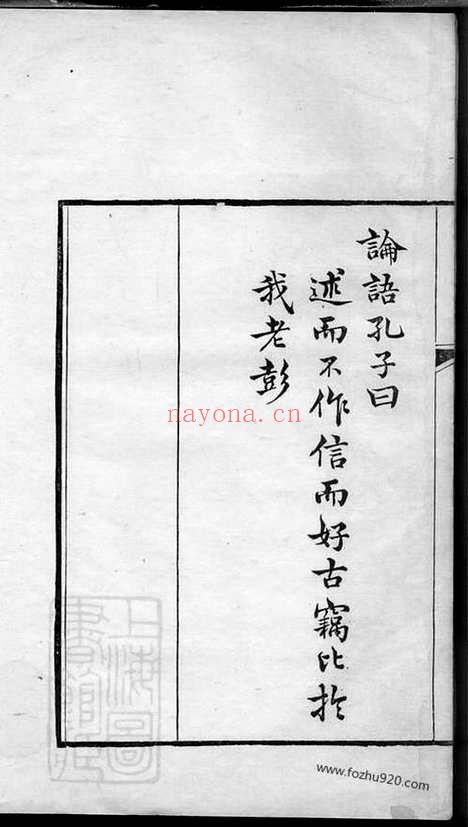 論語孔子曰
述而不作信而好古竊比於
我老彭
nayona.cn
上海圖
書館藏
www.fozhu920.com